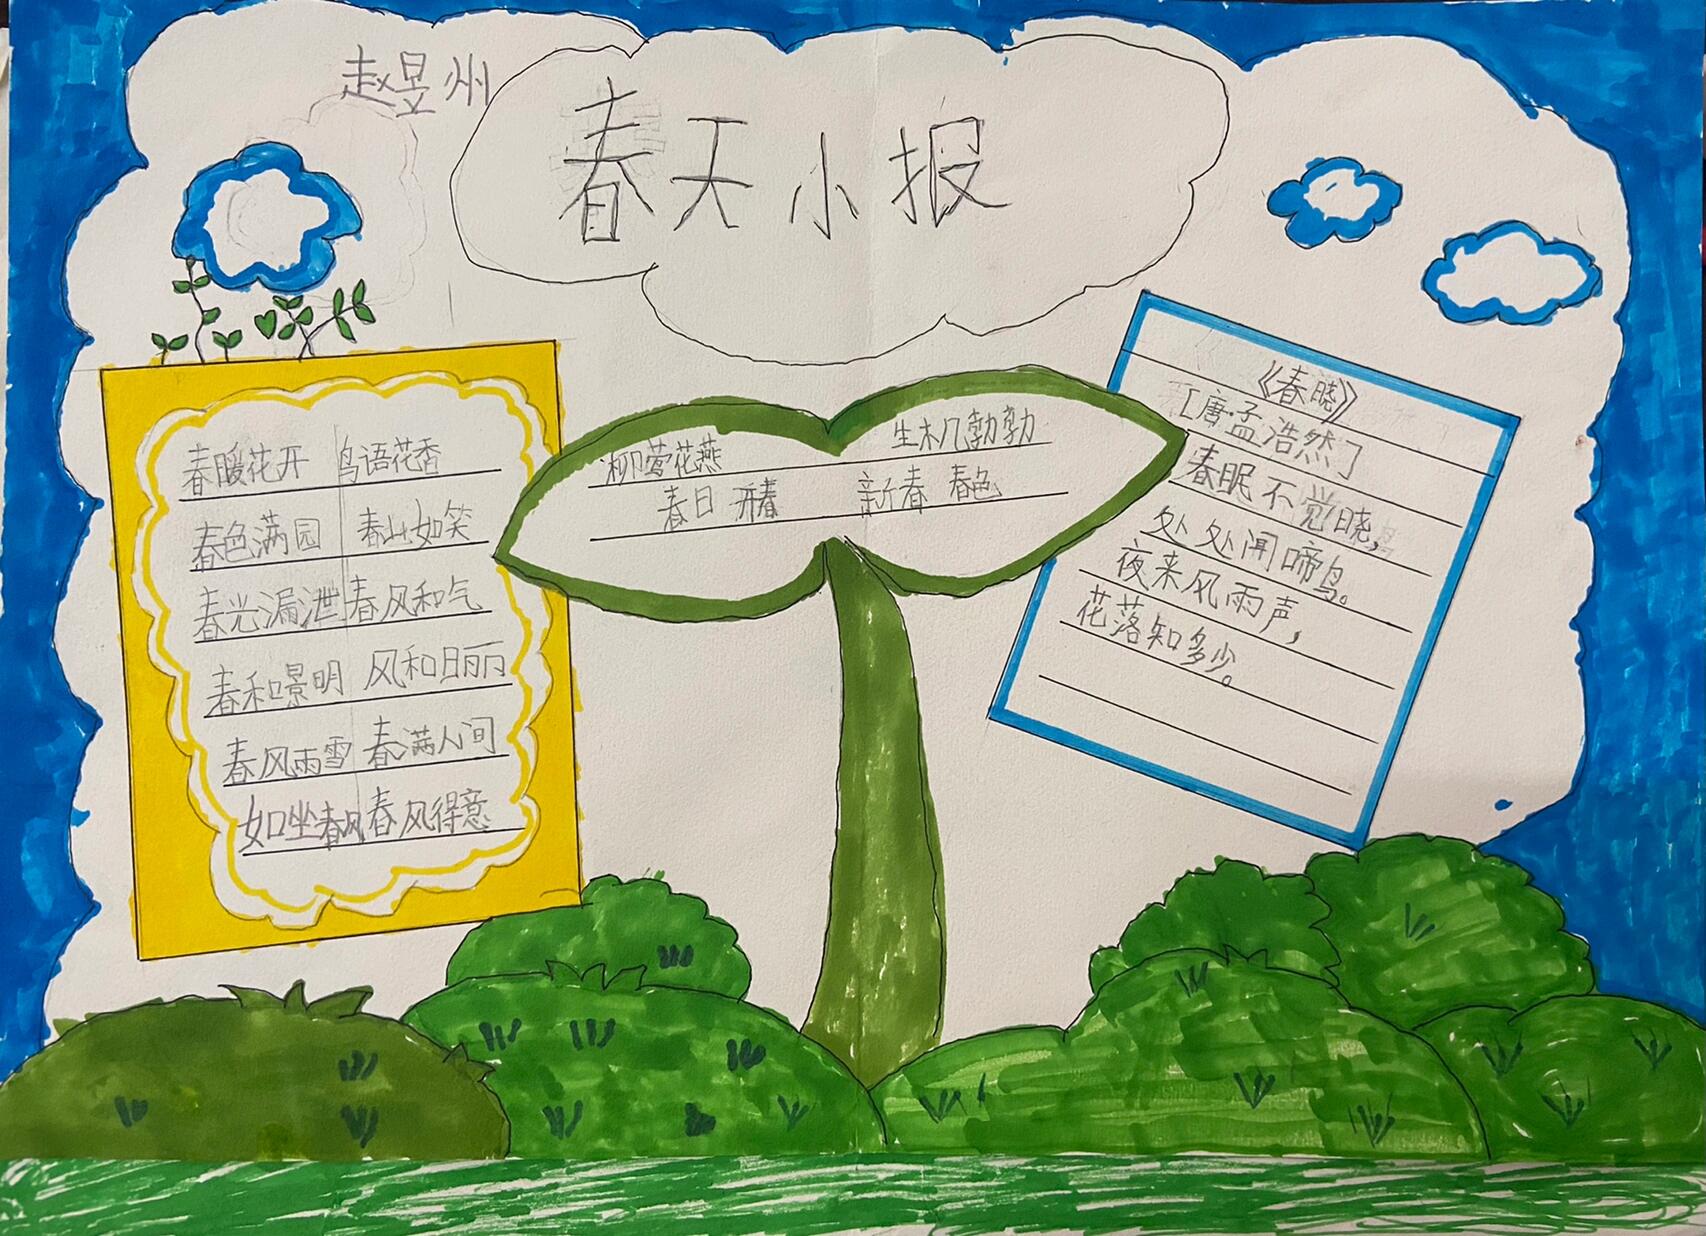 赵昱州
春天小报
春暖花开 鸟语花香
春色满园 春山如笑
春光漏泄 春风和气
春和景明 风和日丽
春风雨雪 春满人间
如坐春风 春风得意
柳莺花燕 生机勃勃
春日 开春 新春 春色
《春晓》
[唐·孟浩然]
春眠不觉晓,
处处闻啼鸟。
夜来风雨声,
花落知多少。